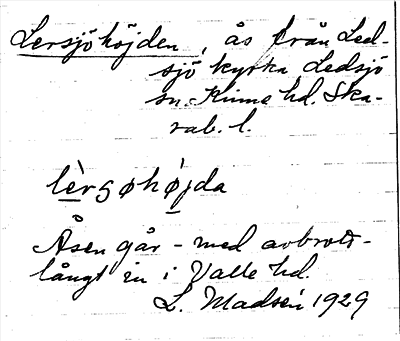 Lersjöhöjden, ås från Led-
sjö kyrka, Ledsjö
sn. Kinne hd. Ska-
rab. l.
lèrsøhø̀jda
Åsen går - med avbrott -
långt in i Valle hd.
L. Madsén 1929